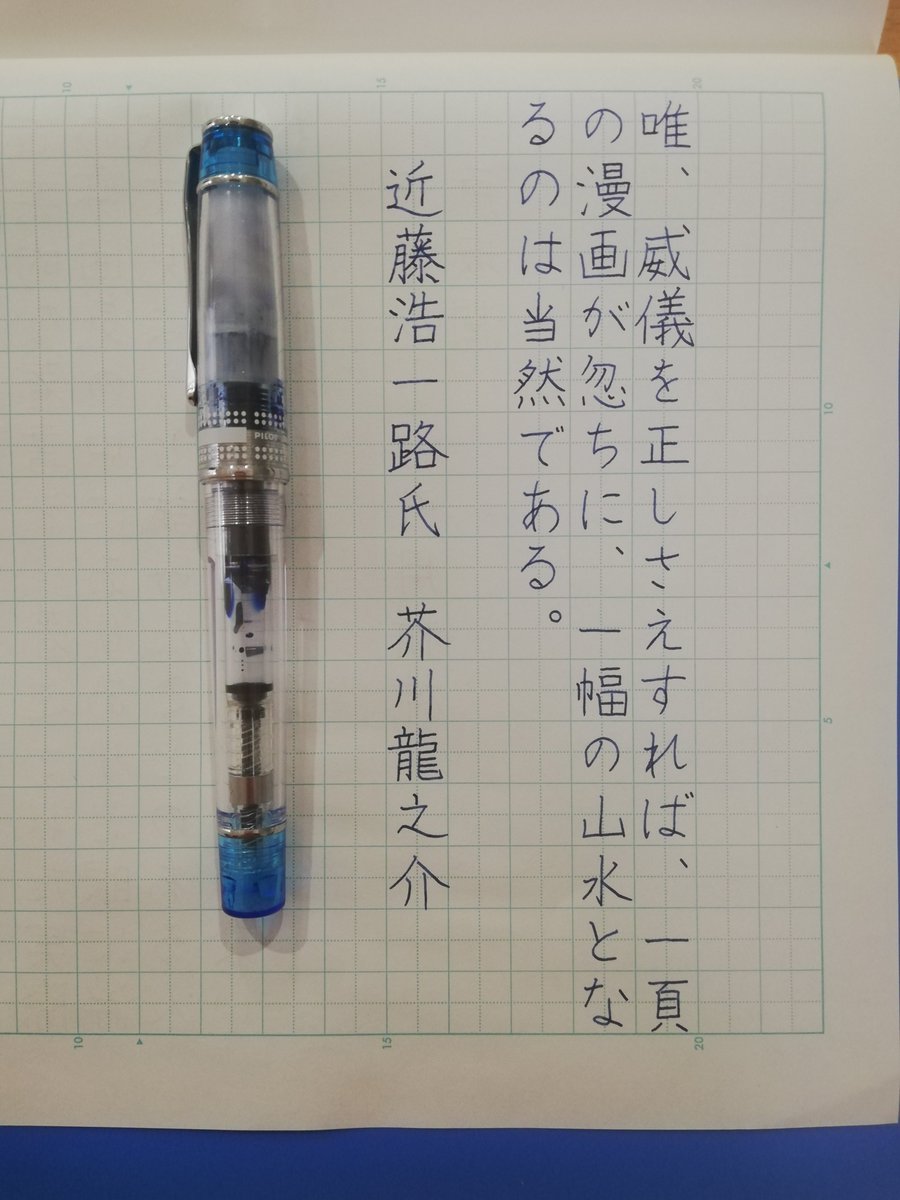 唯、威儀を正しさえすれば、一頁
の漫画が忽ちに、一幅の山水とな
るのは当然である。
近藤浩一路氏　芥川龍之介
PILOT
10
15
20
10
5
10
15
20